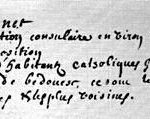 net
tion consulaire environ
osition
d'habitans catholiques
de bedouesc, ce sont le
es plus voisins.